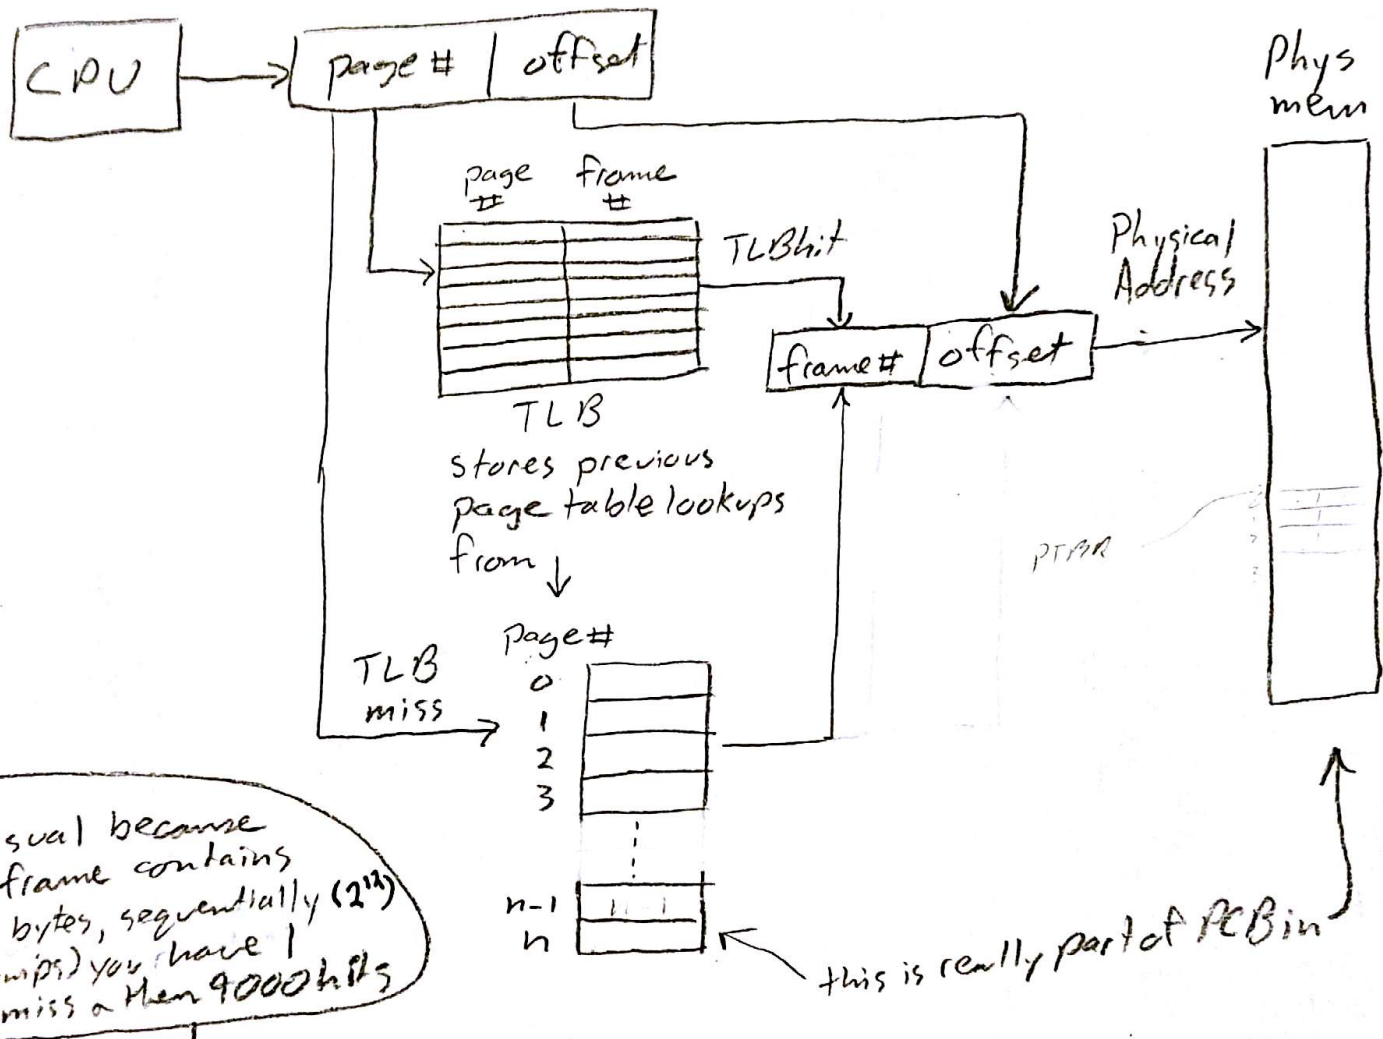 CPU
page # offset
Phys
mem
page frame
# #
TLB hit
Physical
Address
frame # offset
TLB
stores previous
page table lookups
from
PTBR
page #
TLB
miss
0
1
2
3
n-1
n
this is really part of PCB in
sual because
frame contains
bytes, sequentially (2¹²)
mips) you have 1
miss then 4000 hits